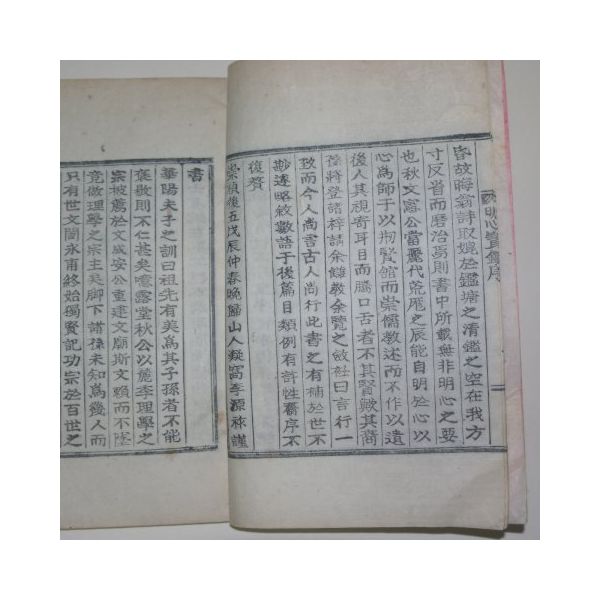 明心寶鑑序
昏故晦翁詩取媲於鑑塘之清鑑之空在我方
寸反省而磨治焉則書中所載無非明心之要
也秋文憲公當麗代荒厖之辰能自明於心以
心爲師于以刱賢館而崇儒教述而不作以遺
後人其視寄耳目而騰口舌者不其賢歟其裔
孫將登諸梓請余讎敎余覽之斂衽曰言行一
致而今人尚書古人尚行此書之有補於世不
尠遂略敘數語于後篇目類例有許性齋序不
復贅
崇禎後五戊辰仲春晩歸山人癡窩李源祚謹
書
華陽夫子之訓曰祖先有美爲其子孫者不能
褒敭則不仁甚矣噫露堂秋公以麗季理學之
宗被薦於文成安公重建文廟斯文賴而不墜
竟倣理學之宗主矣脚下諸孫未知爲幾人而
只有世文閣永甫終始獨賢記功宗於百世之